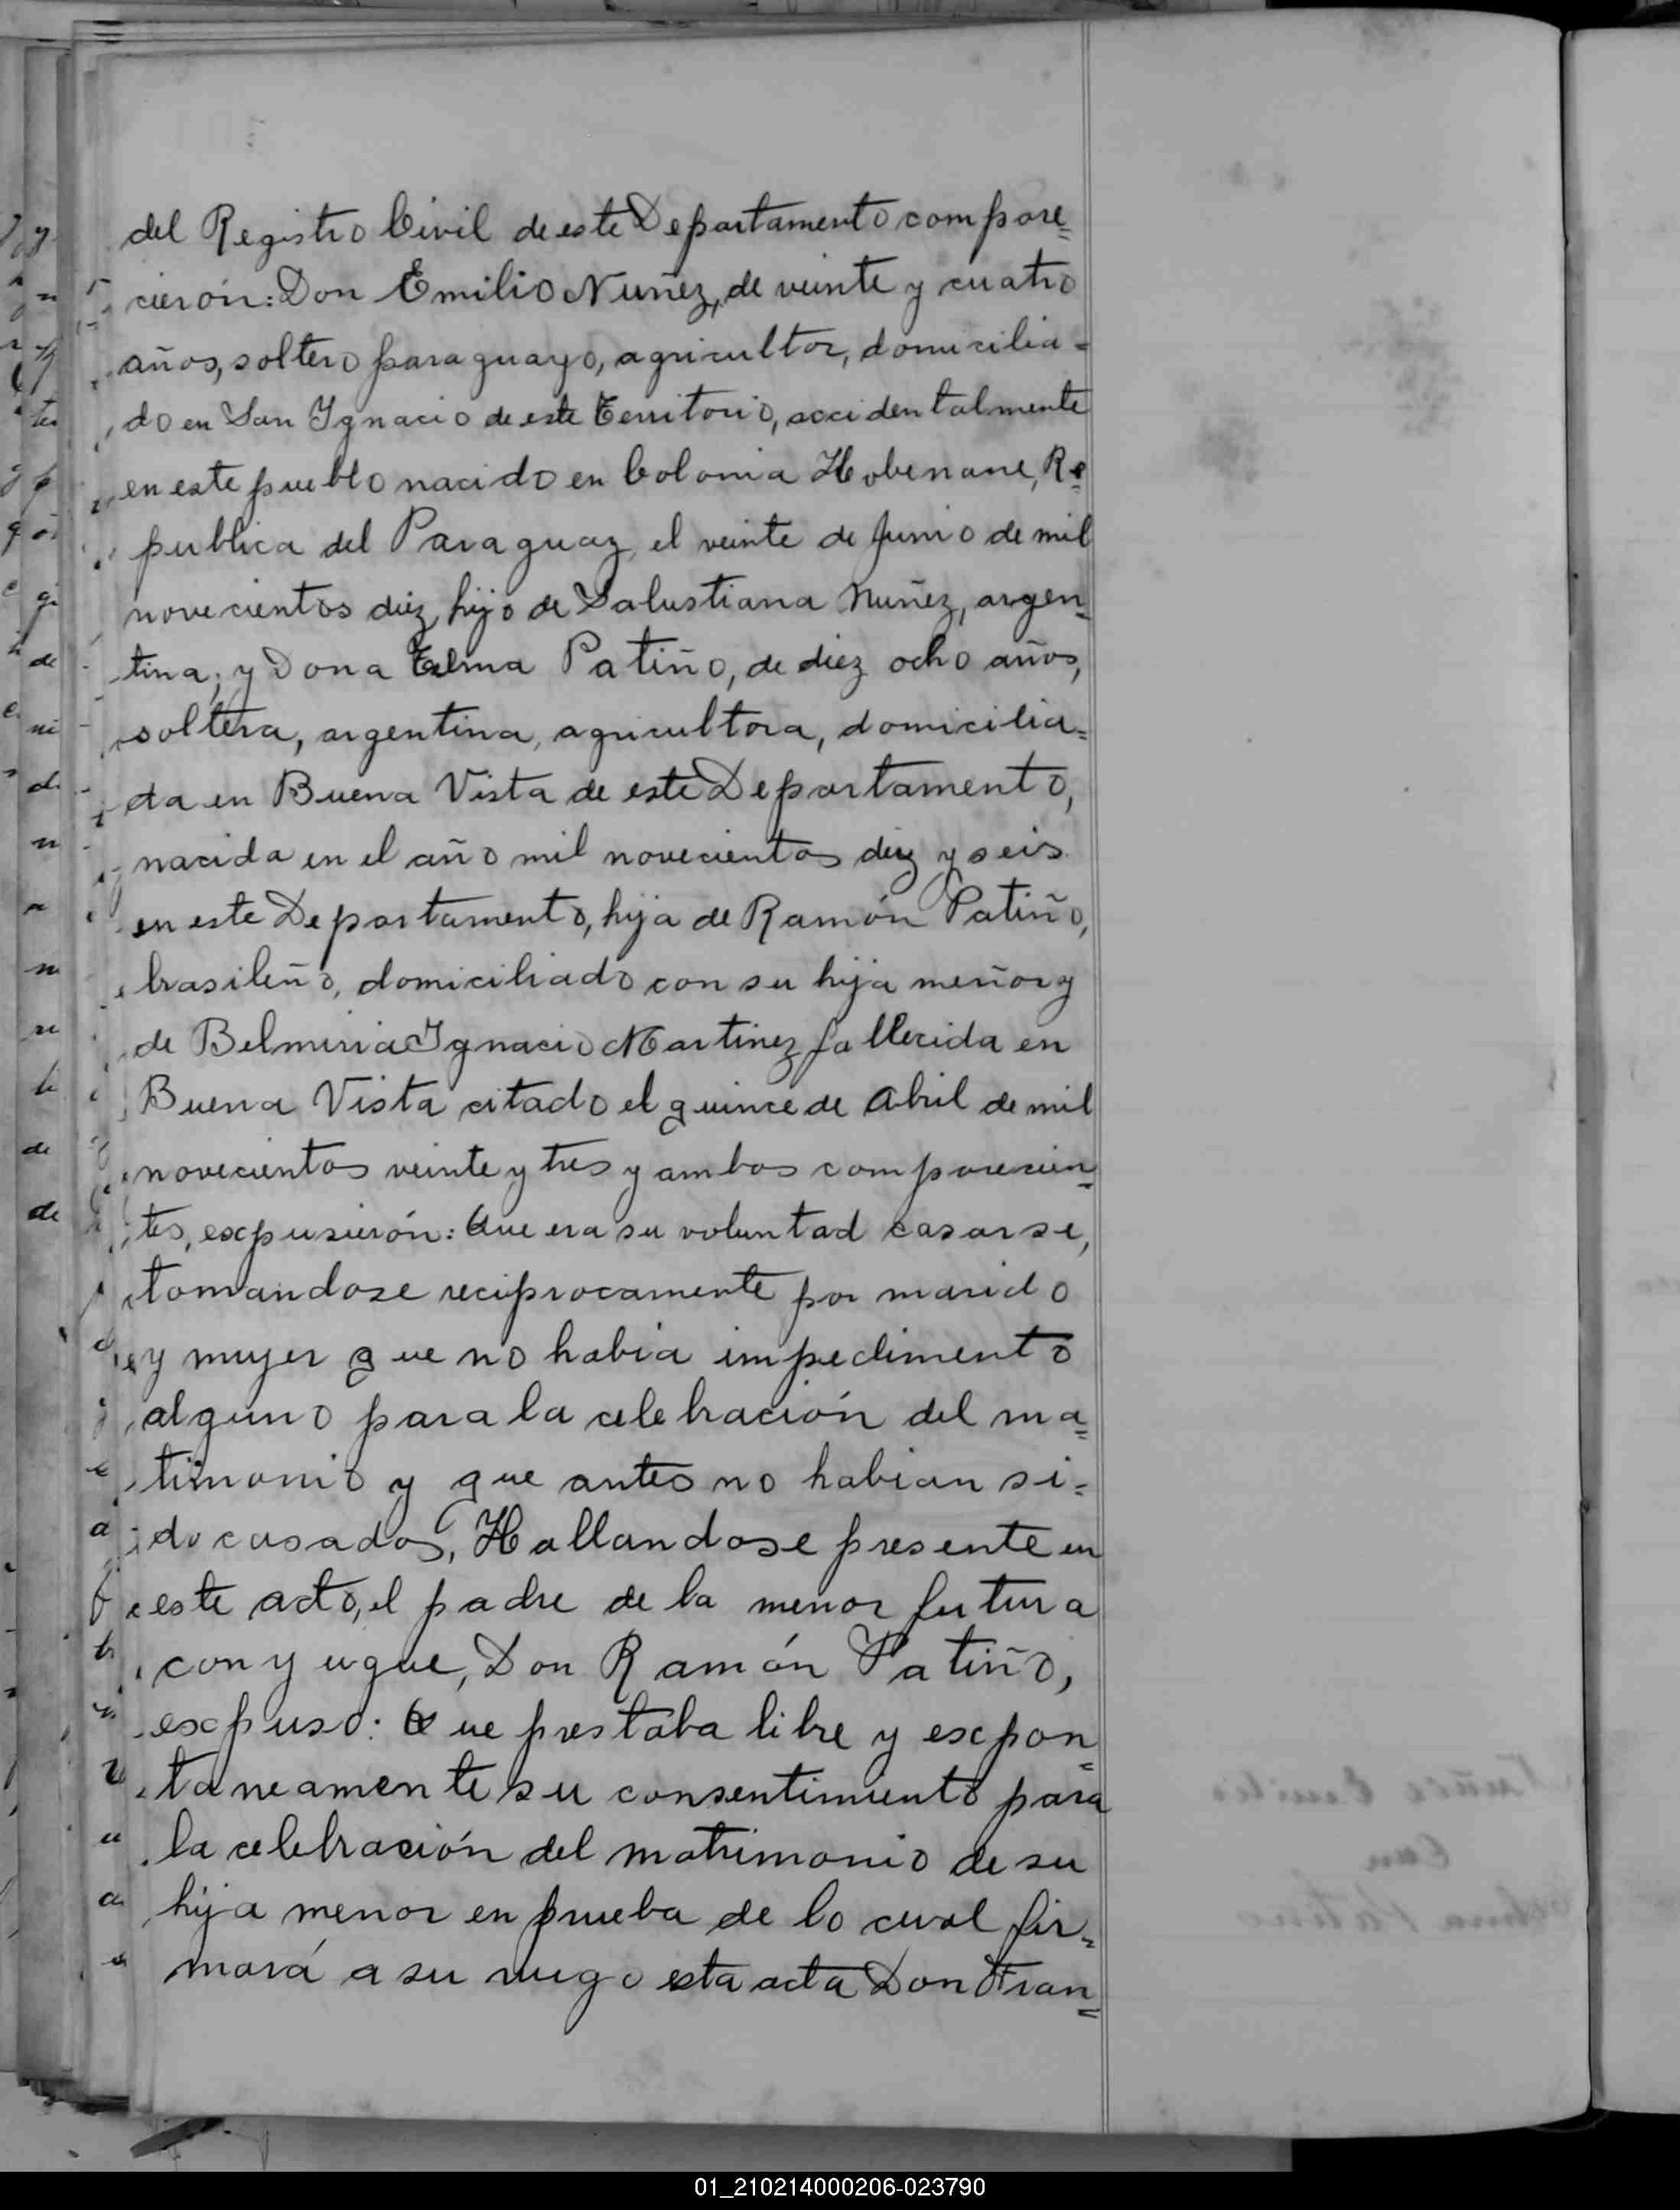 del Registro Civil de este Departamento compare=
cierón: Don Emilio Nuñez, de veinte y cuatro
años, soltero paraguayo, agricultor, domicilia=
do en San Ignacio de este Territorio, accidentalmente
en este pueblo nacido en Colonia Hobenane, Re=
publica del Paraguay, el veinte de Junio de mil
novecientos diez, hijo de Salustiana Nuñez, argen=
tina; y Dona Telma Patiño, de diez ocho años,
soltera, argentina, agricultora, domicilia=
da en Buena Vista de este Departamento,
nacida en el año mil novecientos diez y seis
en este Departamento, hija de Ramón Patiño,
brasileño, domiciliado con su hija meñor y
de Belmiria Ignacio Martinez fallecida en
Buena Vista citado el quince de Abril de mil
novecientos veinte y tres y ambos comparecien=
tes, expusierón: Que era su voluntad casarse,
tomandose reciprocamente por marido
y mujer que no habia impedimento
alguno para la celebración del ma=
timonio y que antes no habian si=
do casados, Hallandose presente en
este acto, el padre de la menor futura
conyugue, Don Ramón Patiño,
expuso: Que prestaba libre y expon=
taneamente su consentimiento para
la celebración del matrimonio de su
hija menor en prueba de lo cual fir=
mará a su ruego esta acta Don Fran=
01_210214000206-023790